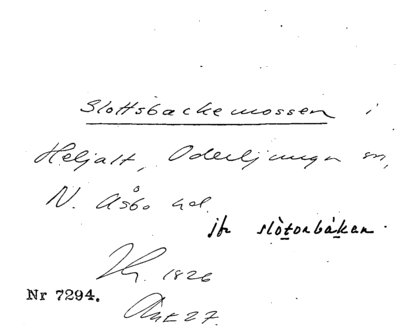 Slottsbackemossen i
Heljalt, Oderljunga sn,
N. Åsbo hd.
jfr slòtənbàkan.
1826
Nr 7294.